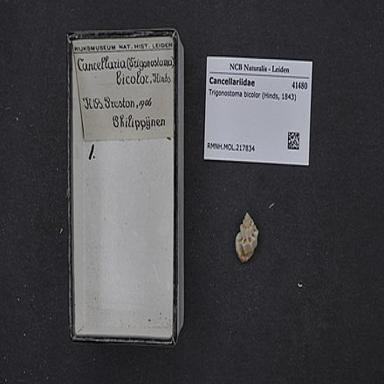 RIJKSMUSEUM NAT. HIST. LEIDEN
Cancellaria (Trigonostoma)
bicolor, Hinds
H.B. Preston, 1906
Philippijnen
1.
NCB Naturalis - Leiden
Cancellariidae 41480
Trigonostoma bicolor (Hinds, 1843)
RMNH.MOL.217834